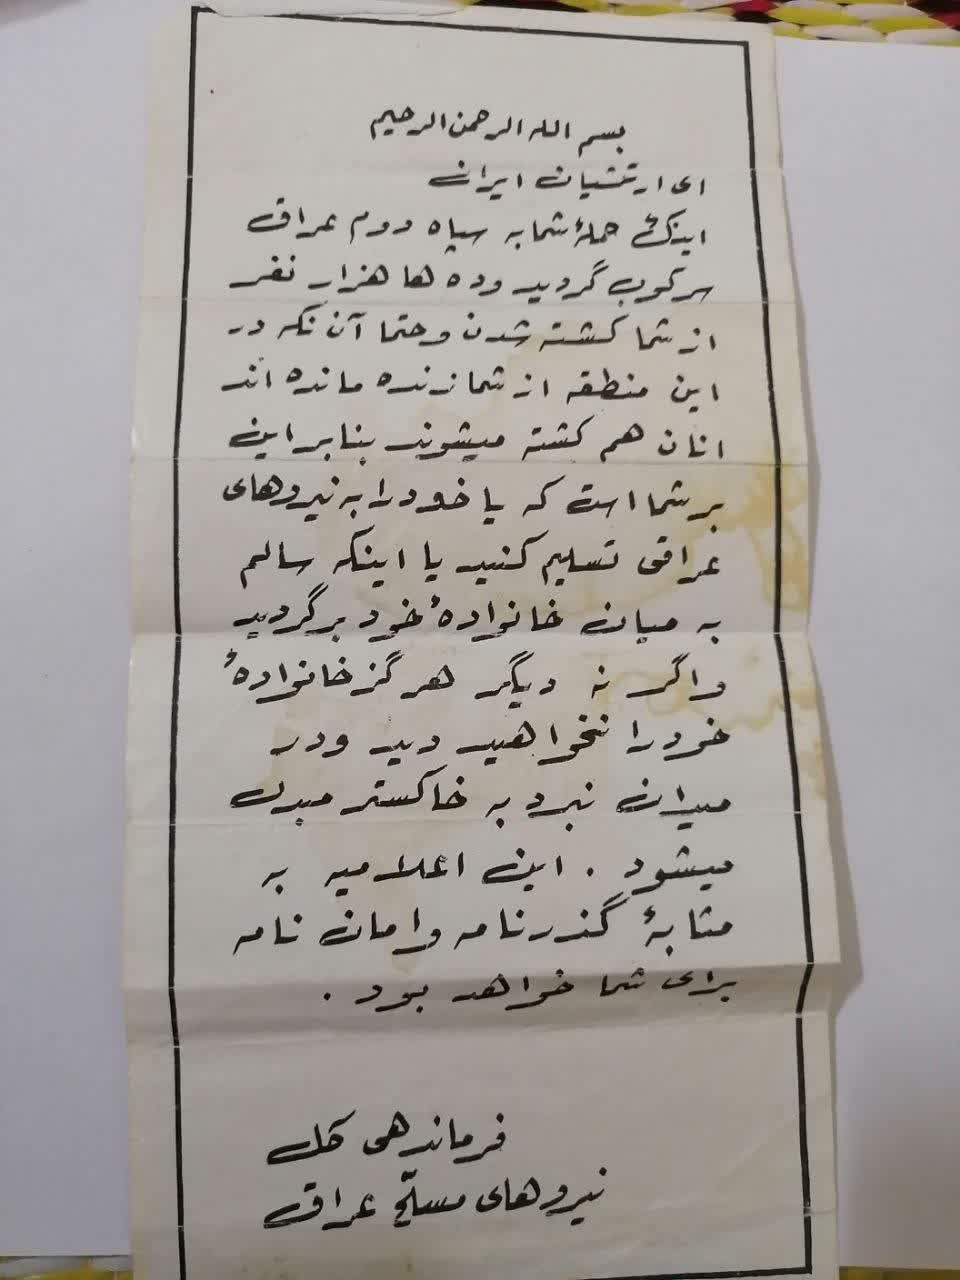 بسم الله الرحمن الرحیم
ای ارتشیان ایران
اینک حملهٔ شما به سپاه دوم عراق
سرکوب گردید وده ها هزار نفر
از شما کشته شدن وحتما آن نکه در
این منطقه از شما زنده مانده اند
انان هم کشته میشوند بنابراین
بر شما است که یا خود را به نیروهای
عراقی تسلیم کنید یا اینکه سالم
به میان خانوادهٔ خود برگردید
واگر نه دیگر هرگز خانوادهٔ
خود را نخواهید دید ودر
میدان نبرد به خاکستر مبدل
میشود . این اعلامیه به
مثابهٔ گذرنامه وامان نامه
برای شما خواهد بود .
فرماندهی کل
نیروهای مسلّح عراق